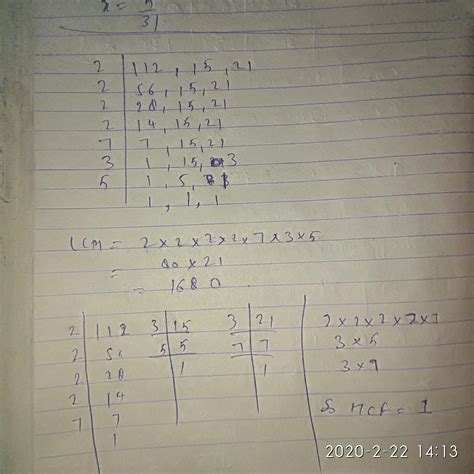 x = 5/31
2 | 112, 15, 21
2 | 56, 15, 21
2 | 28, 15, 21
2 | 14, 15, 21
7 | 7, 15, 21
3 | 1, 15, 3
5 | 1, 5, 1
1, 1, 1
LCM = 2×2×2×2×7×3×5
= 80×21
= 1680
2 | 112 3 | 15 3 | 21 2×2×2×2×7
2 | 56 5 | 5 7 | 7 3×5
2 | 28 1 1 3×7
2 | 14
7 | 7 So HCF = 1
1
2020-2-22 14:13